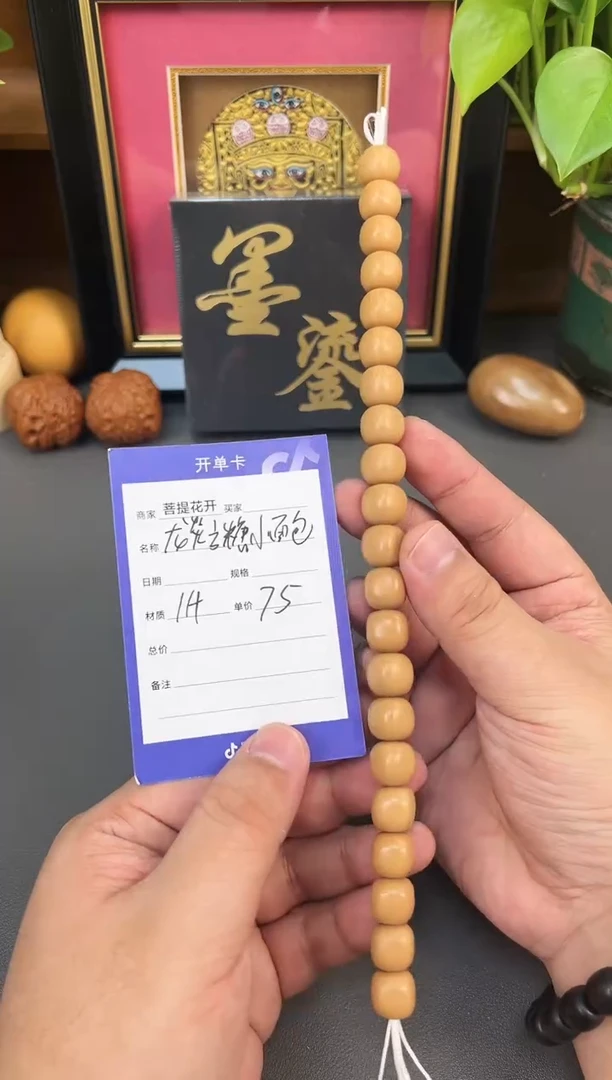 墨
鎏
开单卡
商家 菩提花开 买家
名称 小面包
日期 规格
材质 14 单价 75
总价
备注